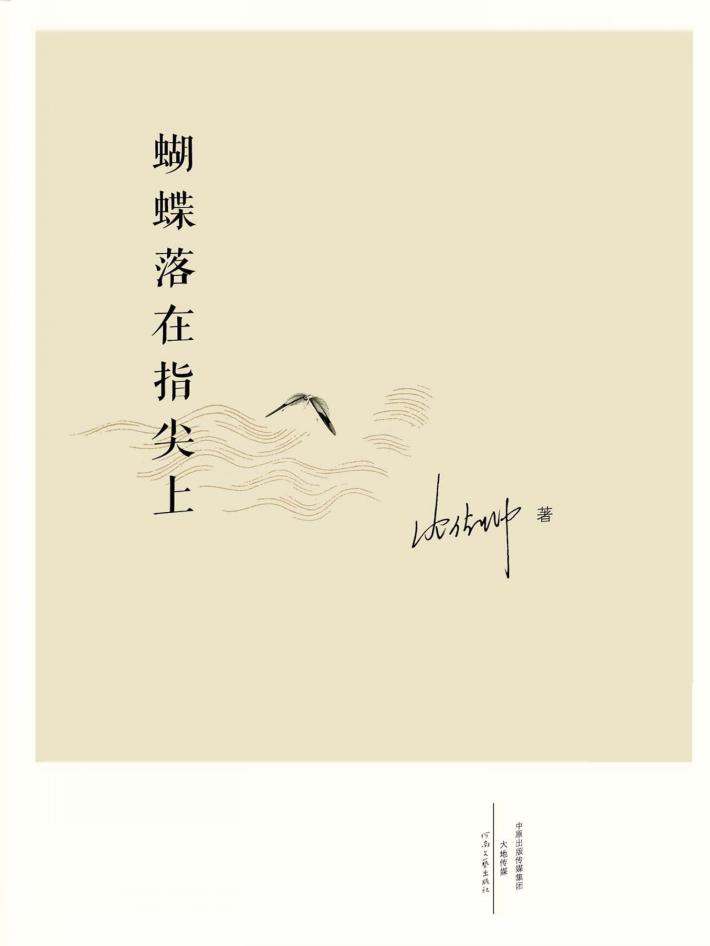 蝴蝶落在指尖上
著
中原出版传媒集团
大地传媒
河南文艺出版社